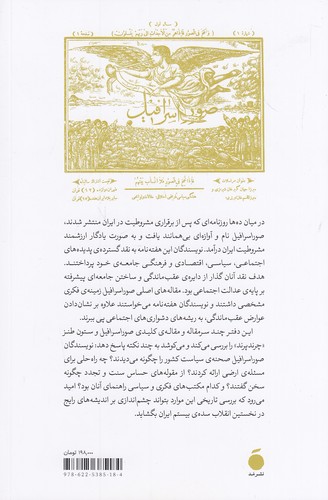 سال اول
نمره ۱
صفحه ۱
صور اسرافیل
در میان ده‌ها روزنامه‌ای که پس از برقراری مشروطیت در ایران منتشر شدند،
صوراسرافیل نام و آوازه‌ای بی‌همانند یافت و به صورت یادگار ارزشمند
مشروطیت ایران درآمد. نویسندگان این هفته‌نامه به نقد گسترده‌ی پدیده‌های
اجتماعی، سیاسی، اقتصادی و فرهنگی جامعه‌ی خود پرداختند.
هدف نقد آنان گذار از دایره‌ی عقب‌ماندگی و ساختن جامعه‌ای پیشرفته
بر پایه‌ی عدالت اجتماعی بود. مقاله‌های اصلی صوراسرافیل زمینه‌ی فکری
مشخصی داشتند و نویسندگان هفته‌نامه می‌خواستند علاوه بر نشان‌دادن
عوارض عقب‌ماندگی، به ریشه‌های دشواری‌های اجتماعی پی ببرند.
این دفتر چند سرمقاله و مقاله‌ی کلیدی صوراسرافیل و ستون طنز
«چرندپرند» را بررسی می‌کند و می‌کوشد به چند نکته پاسخ دهد: نویسندگان
صوراسرافیل صحنه‌ی سیاست کشور را چگونه می‌دیدند؟ چه راه‌حلی برای
مسئله‌ی ارضی ارائه کردند؟ از مقوله‌های حساس سنت و تجدد چگونه
سخن گفتند؟ و کدام مکتب‌های فکری و سیاسی راهنمای آنان بود؟ امید
می‌رود که بررسی تاریخی این موارد بتواند چشم‌اندازی بر اندیشه‌های رایج
در نخستین انقلاب سده‌ی بیستم ایران بگشاید.
۱۹۸,۰۰۰ تومان
978-622-5385-18-4
نشر مَد